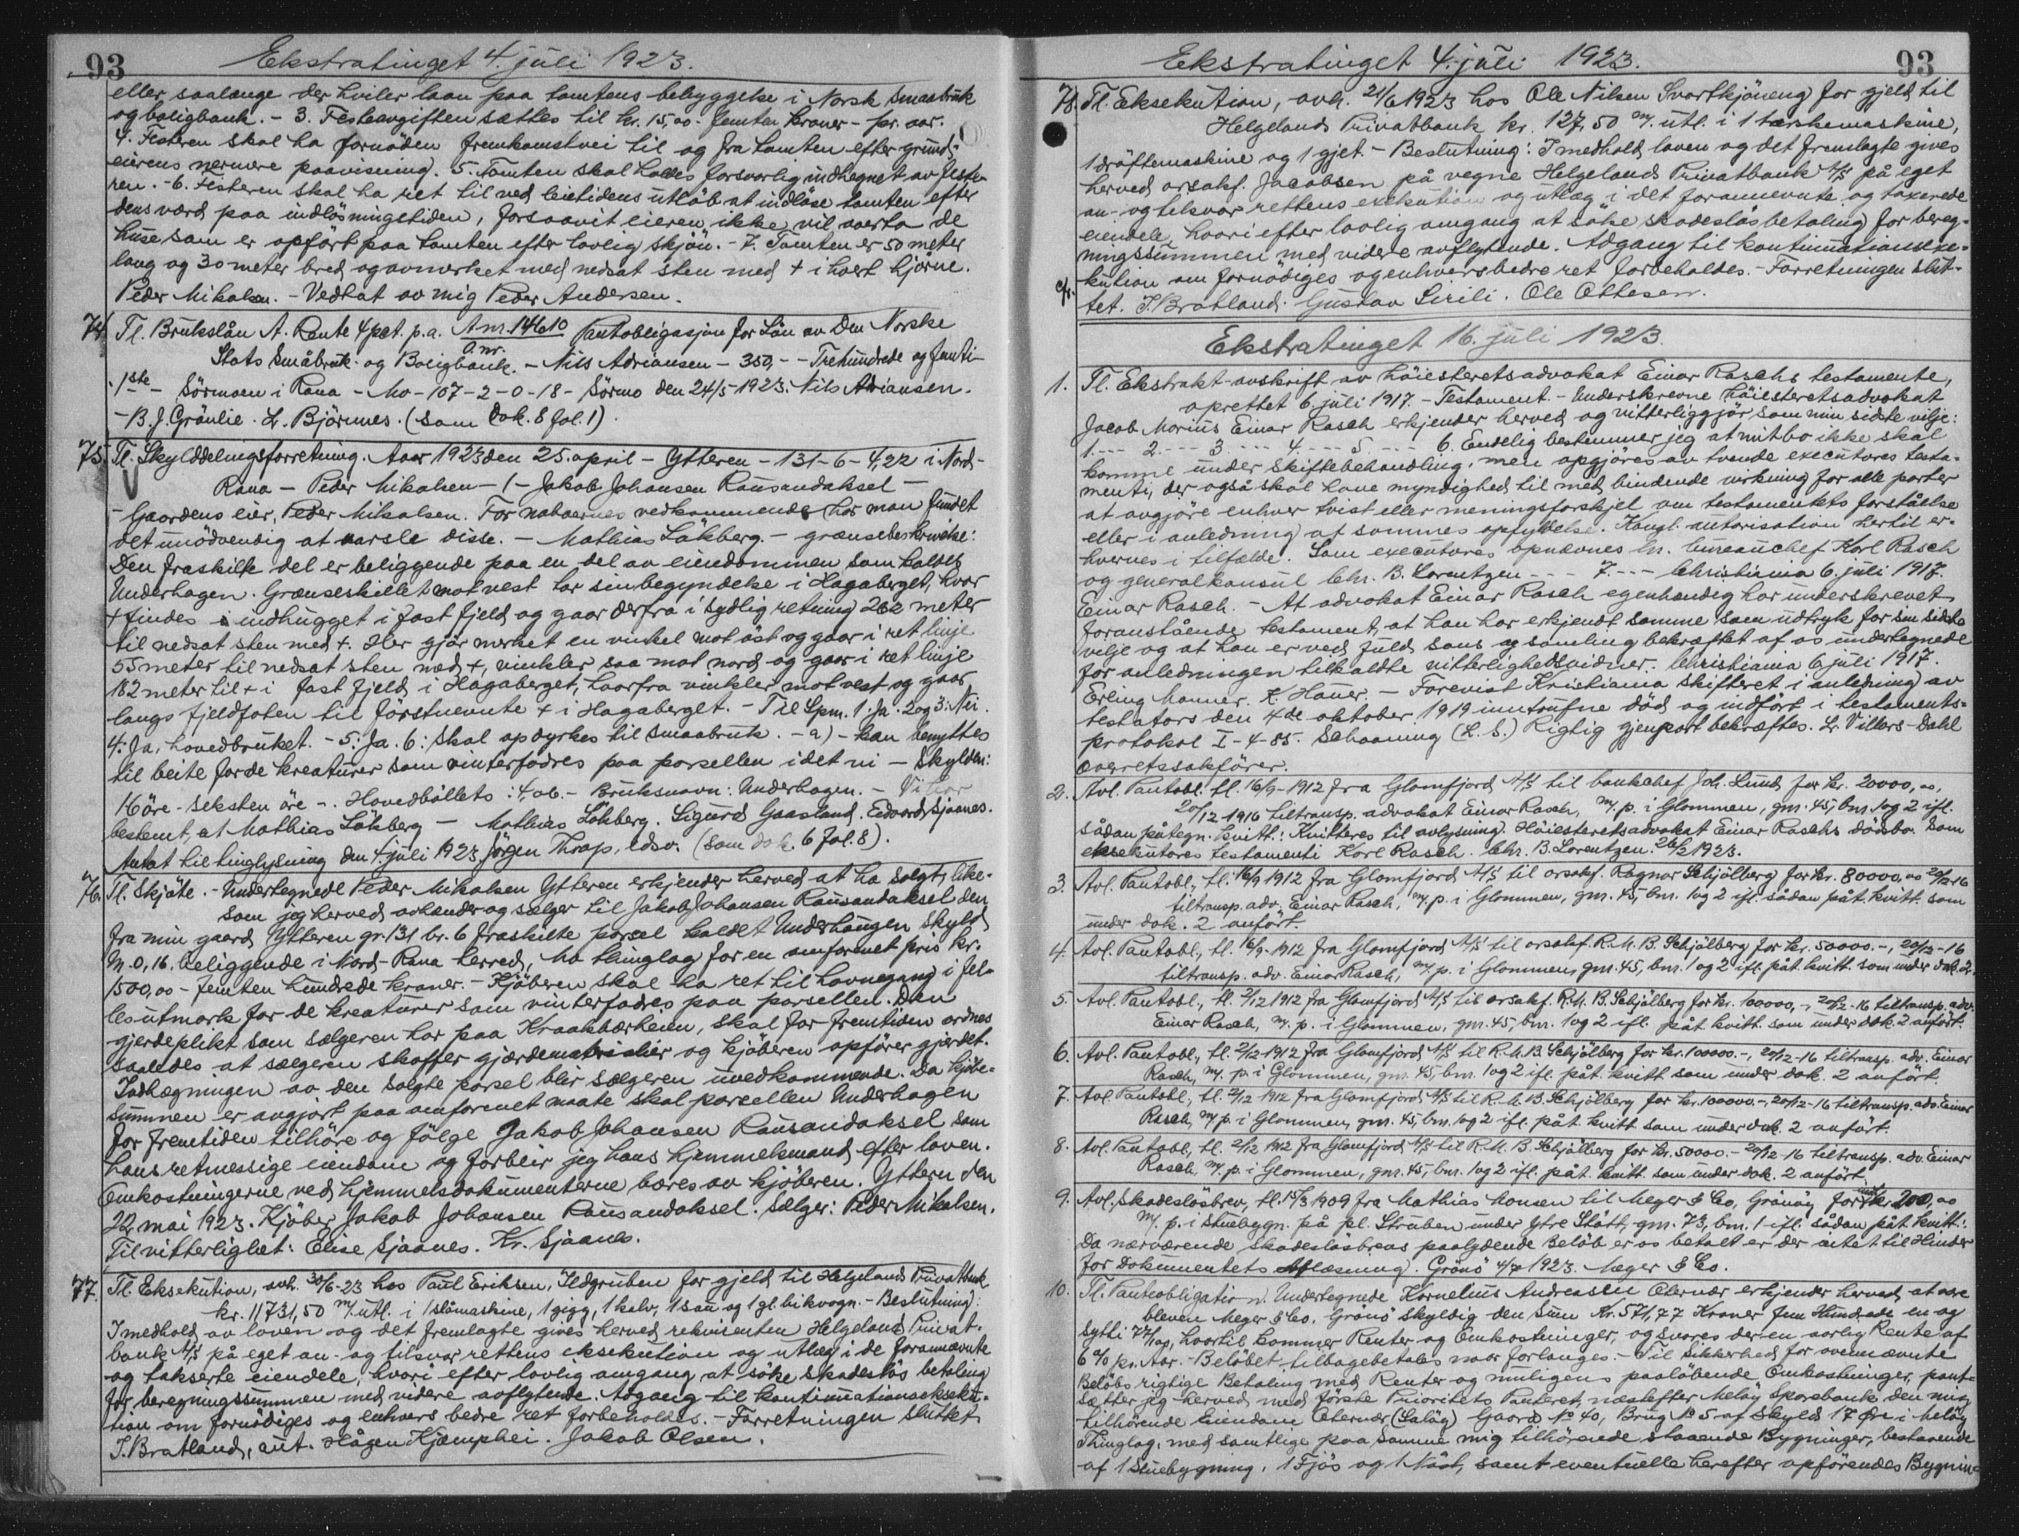 93
Ekstratinget 4. juli 1923.
eller saalænge der hviler laan paa tomtens bebyggelse i Norsk Smaabruk
og boligbank. - 3. Festeavgiften sættes til kr. 15,00 - femten kroner - pr. aar.
4. Festeren skal ha fornøden fremkomstvei til og fra tomten efter grund-
eierens nærmere paavisning. 5. Tomten skal holdes forsvarlig indhegnet av feste-
ren. - 6. Festeren skal ha ret til ved leietidens utløb at indløse tomten efter
dens værd paa indløsningstiden, forsaavit eieren ikke vil overta de
huse som er opført paa tomten efter lovlig skjøn. - 7. Tomten er 50 meter
lang og 30 meter bred og avmerket med nedsat sten med + i hvert hjørne.
Peder Mikalsen. - Vedtat av mig Peder Andersen.
74. Tl. Brukslån A. Rente 4 pct. p.a. A nr. 14610 Pantobligasjon for Lån av Den Norske
Stats Småbruk- og Boligbank. - Nils Adriansen - 350, - - Trehundrede og femti -
- 1ste - Sörmoen i Rana - Mo - 107-2-0-18 - Sörmo den 24/5-1923. Nils Adriansen.
- B. J. Grönlie. L. Björnnes. (Som Dok. 8 fol. 1).
75. Tl. Skylddelingsforretning. Aar 1923 den 25. april - Ytteren - 131-6-4,22 i Nord-
Rana - Peder Mikalsen - 1 - Jakob Johansen Rausandaksel -
- Gaardens eier, Peder Mikalsen. For naboernes vedkommende har man fundet
det unödvendig at varsle disse. - Mathias Lökberg. - grænsebeskrivelse:
Den fraskilte del er beliggende paa en del av eiendommen som kaldes
Underhagen. Grænseskillet mot vest tar sin begyndelse i Hagaberget, hvor
+ findes indhugget i fast fjeld og gaar derfra i sydlig retning 262 meter
til nedsat sten med +. Her gjör merket en vinkel mot öst og gaar i ret linje
55 meter til nedsat sten med +, vinkler saa mot nord og gaar i ret linje
182 meter til + i fast fjeld i Hagaberget, hvorfra vinkler mot vest og gaar
langs fjeldfoten til förstnevnte + i Hagaberget. - Til Spm. 1: Ja. 2 og 3: Nei.
4: Ja, hovedbruket. - 5: Ja. 6: Skal opdyrkes til smaabruk. - a) - kan benyttes
til beite for de kreaturer som vinterfödres paa parsellen i det ni - Skylden:
16 öre - seksten öre -. Hovedböllets: 4,06. - Bruksnavn: Underhagen. - Vi har
bestemt, at Mathias Lökberg - Mathias Lökberg. Sigurd Gaasland. Edvard Sjaanes.
Antat til tinglysning den 4. juli 1923 Jörgen Thrap, edsv. (Som dok. 6 fol. 8).
76. Tl. Skjöte. - Undertegnede Peder Mikalsen Ytteren erkjender herved at ha solgt, like-
som jeg herved avhænder og sælger til Jakob Johansen Rausandaksel den
fra min gaard Ytteren gr. 131 br. 6 fraskilte parsel kaldet Underhaugen Skyld
M. 0,16, beliggende i Nord-Rana herred, Mo thinglag for en omforenet pris kr.
1500,00 - femten hundrede kroner. - Kjöberen skal ha ret til havnegang i fel-
lesutmark for de kreaturer som vinterfödres paa parsellen. Den
gjerdeplikt som sælgeren har paa Kraakbærheien, skal for fremtiden ordnes
saaledes at sælgeren skaffer gjærdematerialier og kjöberen opförer gjærdet.
Indhegningen av den solgte parsel blir sælgeren uvedkommende. Da kjöbe-
summen er avgjort paa omforenet maate skal parsellen Underhagen
for fremtiden tilhöre og fölge Jakob Johansen Rausandaksel som
hans retmessige eiendom og forblir jeg hans hjemmelsmand efter loven.
Omkostningerne ved hjemmelsdokumenterne bæres av kjöberen. Ytteren den
22 mai 1923. Kjöber Jakob Johansen Rausandaksel. Sælger: Peder Mikalsen.
Til vitterlighet: Elise Sjaanes. Kr. Sjaanes.
77. Tl. Eksekution, avh. 30/6-23 hos Paul Eriksen, Ildgruben for gjeld til Helgelands Privatbank
kr. 11731,50 m/ utl. i 1 slåmaskine, 1 gigg, 1 kalv, 1 sau og 1 gl. bikvogn. - Beslutning:
I medhold av loven og det fremlagte gives herved rekvirenten Helgelands Privat-
bank A/S på eget an- og tilsvar rettens eksekution og utlæg i de forannævnte
og takserte eiendele, hvori efter lovlig omgang at söke skadeslös betaling
for beregningssummen med videre avflytende. Adgang til kontinuationseksekü-
tion om fornödiges og enhvers bedre ret forbeholdes. - Forretningen sluttet.
I. Bratland, aut. Hågen Kjæmphei. Jakob Olsen.
Ekstratinget 4. juli 1923.
93
78. Tl. Eksekution, avh. 21/6 1923 hos Ole Nilsen Svartkjöneng for gjeld til
Helgelands Privatbank kr. 127,50 m/ utl. i 1 tærskemaskine,
1 dröftemaskine og 1 gjet. - Beslutning: I medhold loven og det fremlagte gives
herved orsakf. Jacobsen på vegne Helgelands Privatbank A/S på eget
an- og tilsvar rettens exekution og utlæg i det forannevnte og taxerede
eiendele, hvori efter lovlig omgang at söke skadeslösbetaling for bereg-
ningssummen med videre avflytende. Adgang til kontinuationsexe-
kution om fornödiges og enhvers bedre ret forbeholdes. - Forretningen slut-
tet. I. Bratland. Gustav Sirili. Ole Ottesen.
Ekstratinget 16. juli 1923.
1. Tl. Ekstrakt-avskrift av höiesteretsadvokat Einar Raschs testamente,
oprettet 6. juli 1917. - Testament. - Underskrevne höiesteretsadvokat
Jacob Morius Einar Rasch erkjender herved og vitterliggjör som min sidste vilje:
1. --- 2. --- 3. --- 4. --- 5. --- 6. Endelig bestemmer jeg at mit bo ikke skal
komme under skiftebehandling, men opgjöres av tvende executores testa-
menti, der også skal have myndighed til med bindende virkning for alle parter
at avgjöre enhver tvist eller meningsforskjel om testamentets forståelse
eller i anledning af sammes opfyldelse. Kongl. autorisation hertil er-
hverves i tilfælde. Som executores opnævnes hr. bureauchef Karl Rasch
og generalkonsul Chr. B. Lorentzen --- 7. --- Christiania 6. juli 1917.
Einar Rasch. - At advokat Einar Rasch egenhændig har underskrevet
foranstående testament, at han har erkjendt samme som udtryk for sin sidste
vilje og at han er ved fuld sans og samling bekræftet af os undertegnede
for anledningen tilkaldte vitterlighedsvidner. Christiania 6 juli 1917.
Erling Manner. K. Hauer. - Forevist Kristiania skifteret i anledning av
testators den 4de oktober 1919 inntrufne död og indfört i testaments-
protokol I-4-85. Schaaning (L.S.) Rigtig gjenpart bekræftes. Lr. Villars-Dahl
overretssakförer.
2. Avl. Pantobl. tl. 16/9-1912 fra Glomfjord A/S til bankchef Joh. Lund for kr. 20000,00,
20/12-1916 tiltransp. advokat Einar Rasch, m/ p. i Glommen, gm. 45, bm. 1 og 2 ifl.
sådan påtegn. kvitt.: Kvitteres til avlysning. Höiesteretsadvokat Einar Raschs dödsbo. Som
eksekutores testamenti Karl Rasch. Chr. B. Lorentzen. 26/2 1923.
3. Avl. Pantobl., tl. 16/9 1912 fra Glomfjord A/S til orsakf. Ragnar Schjölberg for kr. 80000,00 20/12-16
tiltransp. adv. Einar Rasch, m/ p. i Glommen, gm. 45, bm. 1 og 2 ifl. sådan påt. kvitt. som
under dok. 2 anfört.
4. Avl. Pantobl., tl. 16/9-1912 fra Glomfjord A/S til orsakf. R. M. B. Schjölberg for kr. 50000.-, 20/12-16
tiltransp. adv. Einar Rasch, m/ p. i Glommen, gm. 45, bm. 1 og 2 ifl. påt. kvitt. som under dok. 2.
5. Avl. Pantobl., tl. 2/12 1912 fra Glomfjord A/S til orsakf. R. M. B. Schjölberg for kr. 100000.-, 20/12-16 tiltransp. adv.
Einar Rasch, m/ p. i Glommen, gm. 45, bm. 1 og 2 ifl. påt. kvitt. som under dok. 2 anfört.
6. Avl. Pantobl., tl. 2/12-1912 fra Glomfjord A/S til R. M. B. Schjölberg for kr. 100000.-, 20/12-16 tiltransp. adv. Einar
Rasch, m/ p. i Glommen, gm. 45, bm. 1 og 2 ifl. påt. kvitt som under dok. 2 anfört.
7. Avl. Pantobl., tl. 2/12 1912 fra Glomfjord A/S til R. M. B. Schjölberg for kr. 100000.-, 20/12-16 tiltransp. adv. Einar
Rasch, m/ p. i Glommen, gm. 45, bm. 1 og 2 ifl. påt. kvitt som under dok. 2 anfört.
8. Avl. Pantobl., tl. 2/12 1912 fra Glomfjord A/S til R. M. B. Schjölberg for kr. 50000.- 20/12-16 tiltransp. adv. Einar
Rasch m/ p. i Glommen, gm. 45, bm. 1 og 2 ifl. påt. kvitt. som under dok. 2 anfört.
9. Avl. Skadeslösbrev, tl. 15/3 1909 fra Mathias Monsen til Meyer & Co, Grönöy for kr. 200,00
m/ p. i stuebygn. på pl. Struben under Ytre Stött, gm. 73, bm. 1 ifl. sådan påt. kvitt.:
Da nærværende skadeslösbrevs paalydende Belöb er os betalt er der intet til Hinder
for dokumentets Aflæsning. Grönö 4/7 1923. Meyer & Co.
10. Tl. Panteobligation. Undertegnede Kornelius Andreasen Olernær erkjender herved, at være
bleven Meyer & Co. Grönö skyldig den Sum Kr. 571,77 Kroner Fem Hundrede en og
sytti 77/100, hvortil kommer Renter og Omkostninger, og svares der en aarlig Rente af
6 % pr. Aar. - Belöbet tilbagebetales naar forlanges. - Til Sikkerhed for ovennævnte
Belöbs rigtige Betaling med Renter og muligens paalöbende Omkostninger, pant-
sætter jeg herved med förste Prioritets Panteret næstefter Melöy Sparebank den mig
tilhörende Eiendom Olernær (Salöy) Gaards No 40, Brug No 5 af skyld 17 Öre i Melöy
Thinglag, med samtlige paa samme mig tilhörende staaende Bygninger, bestaaende
af 1 Stuebygning, 1 Fjös og 1 Nöst, samt eventuelle herefter opförendes Bygnin-